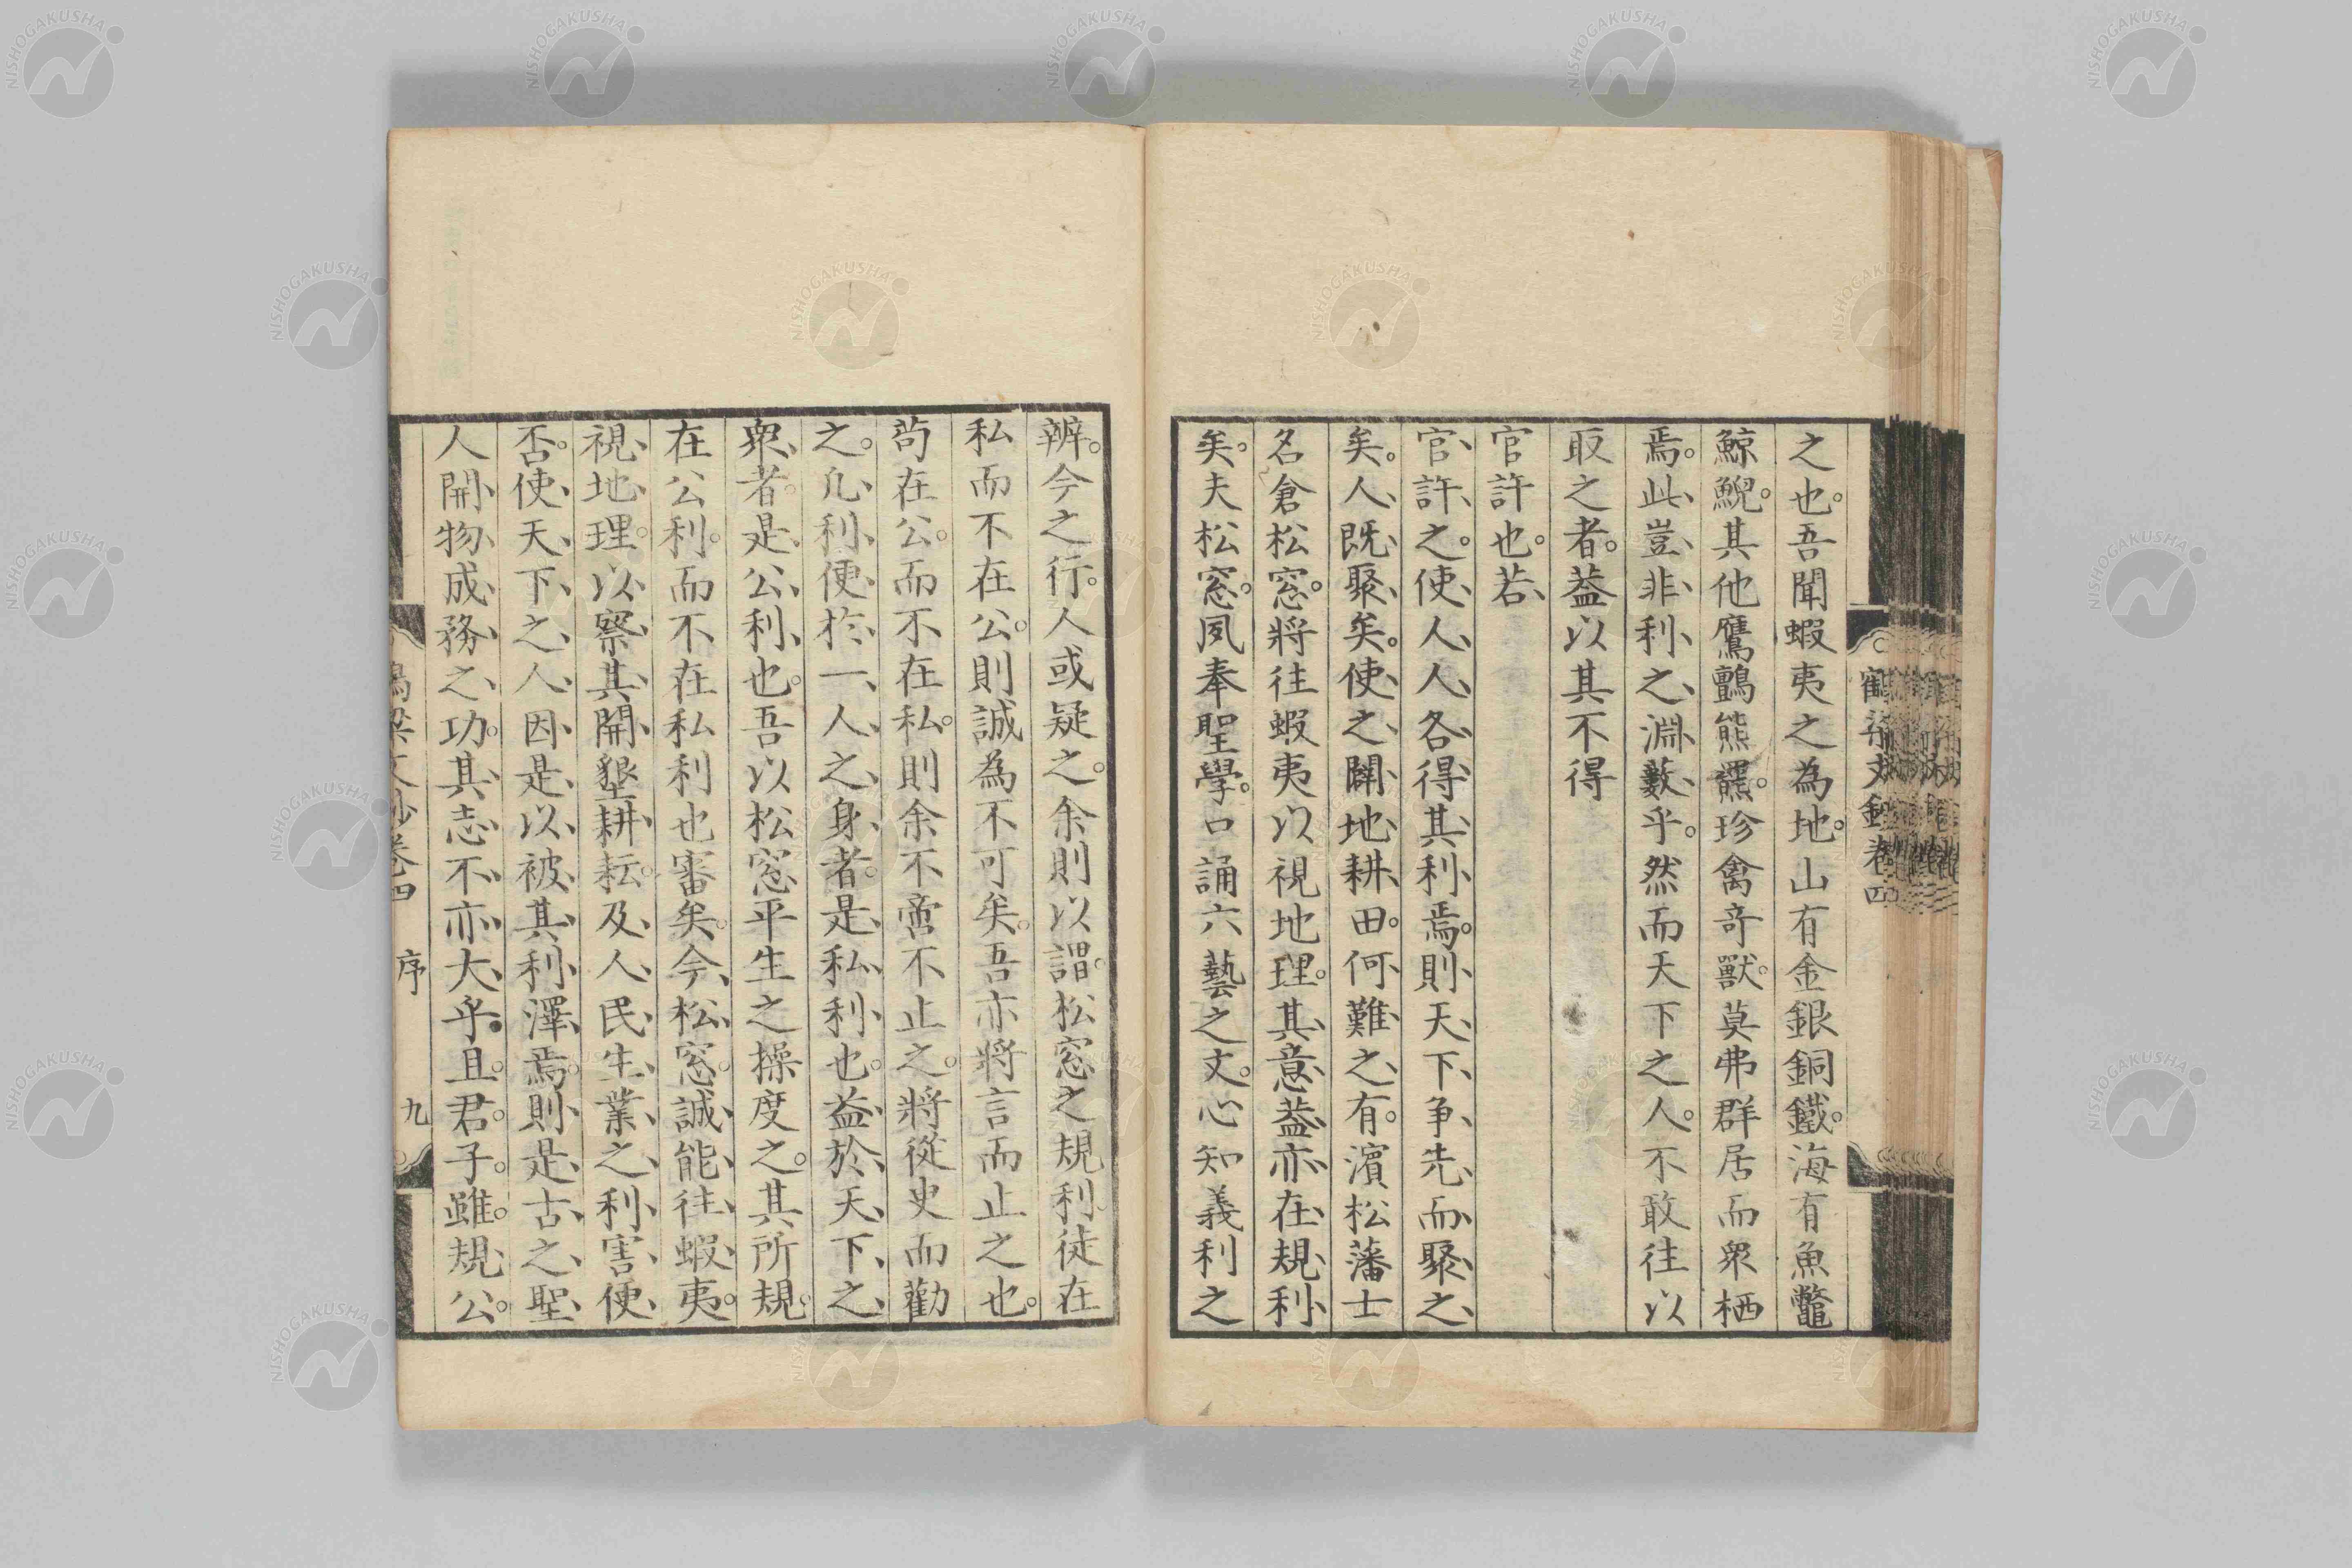 之也。吾聞蝦夷之為地。山有金銀銅鐵。海有魚鼈
鯨鯢。其他鷹鸇熊羆。珍禽竒獸。莫弗群居而衆栖
焉。此豈非利之淵藪乎。然而天下之人。不敢往以
取之者。葢以其不得
官許也。若
官許之。使人人各得其利焉。則天下争先而聚之
矣。人既聚矣。使之闢地耕田。何難之有。濱松藩士
名倉松窓。將往蝦夷以視地理。其意葢亦在規利
矣。夫松窓。夙奉聖學。口誦六藝之文。心知義利之
辨。今之行。人或疑之。余則以謂。松窓之規利。徒在
私而不在公。則誠為不可矣。吾亦將言而止之也。
苟在公。而不在私。則余不啻不止之。將從臾而勸
之。凡利便於一人之身者。是私利也。益於天下之
衆者。是公利也。吾以松窓平生之操度之。其所規。
在公利。而不在私利也審矣。今松窓。誠能往蝦夷。
視地理。以察其開墾耕耘。及人民生業之利害便
否。使天下之人。因是以被其利澤焉。則是古之聖
人開物成務之功。其志不亦大乎。且君子。雖規公。
鶴梁文鈔卷四
鶴梁文鈔卷四 序 九
NISHOGAKUSHA